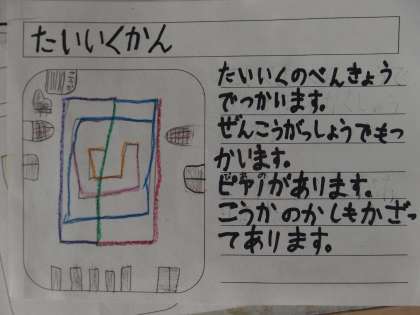 たいいくかん
たいいくのべんきょう
でつかいます。
ぜんこうがっしょうでもつ
かいます。
ピヤノがあります。
こうかのかしもかざっ
てあります。